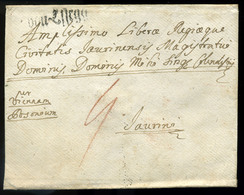 von Essegg
Amplissimo Liberæ Regiæque
Civitatis Jaurinensis Magistratui
Dominis, Dominis Mihi
per
Viennam
Posonium
Jaurini